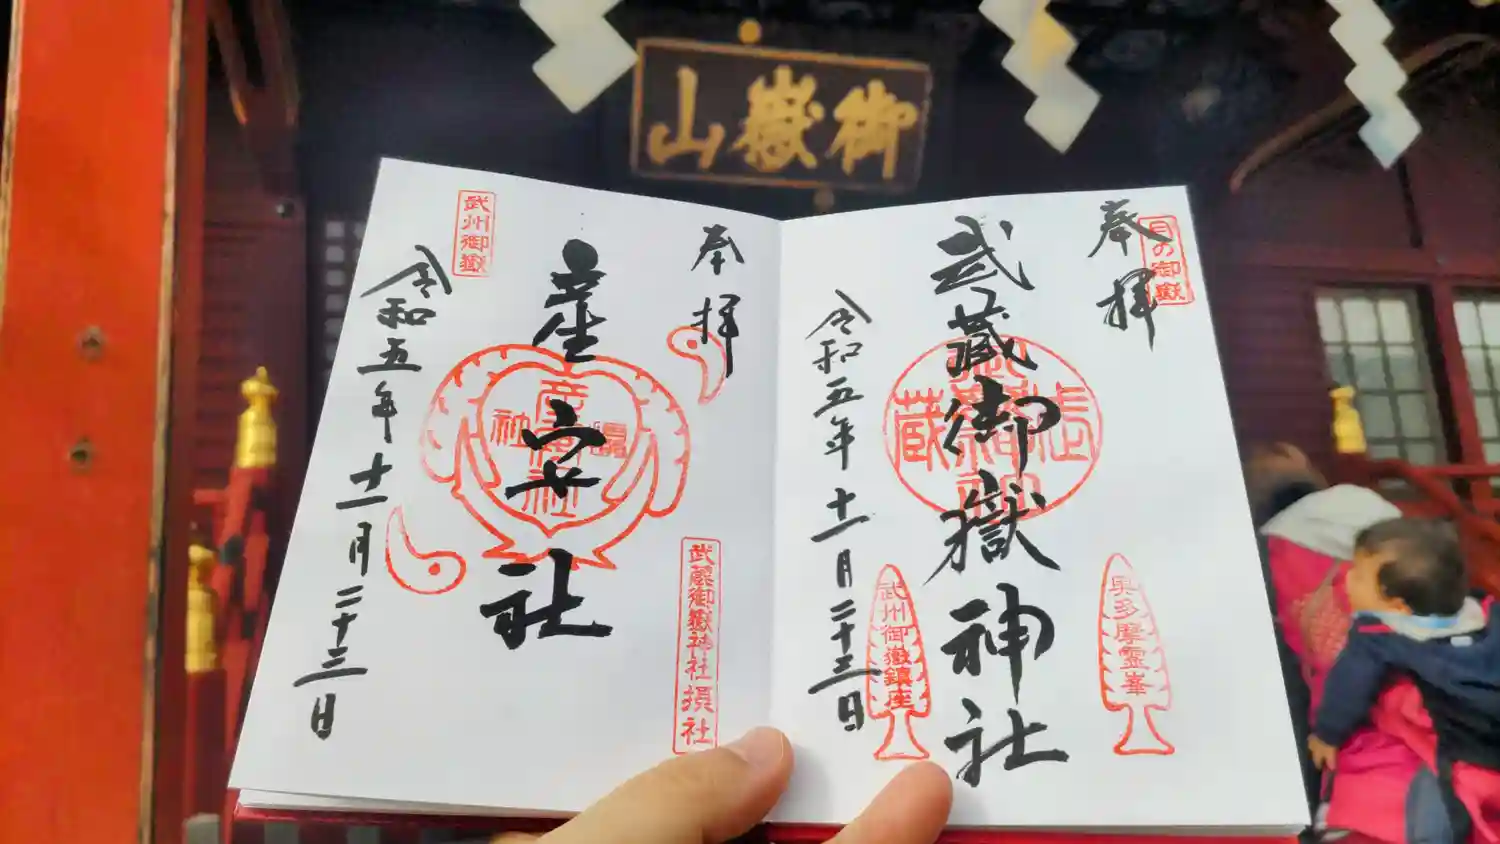 御嶽山
奉拝
月の御嶽
武蔵御嶽神社
令和五年十一月二十三日
武州御嶽鎮座
奥多摩霊峯
奉拝
産安社
令和五年十一月二十三日
武州御嶽
武蔵御嶽神社摂社